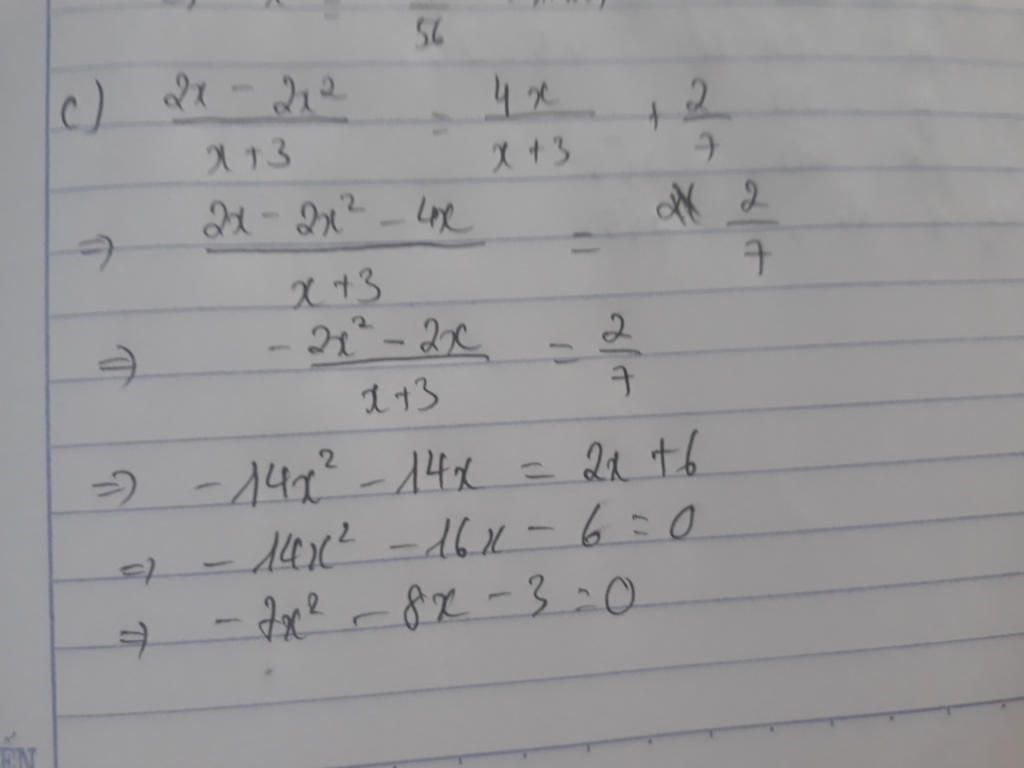 56
c) (2x - 2x²)/(x+3) = 4x/(x+3) + 2/7
=> (2x - 2x² - 4x)/(x+3) = 2/7
=> (-2x² - 2x)/(x+3) = 2/7
=> -14x² - 14x = 2x + 6
=> -14x² - 16x - 6 = 0
=> -7x² - 8x - 3 = 0